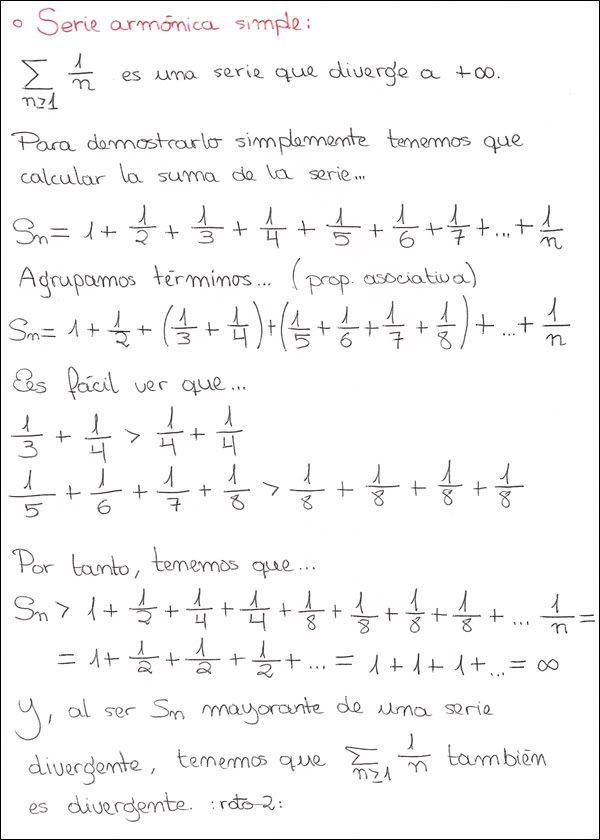 ○ Serie armónica simple:
∑_{n≥1} 1/n es una serie que diverge a +∞.
Para demostrarlo simplemente tenemos que
calcular la suma de la serie...
Sn = 1 + 1/2 + 1/3 + 1/4 + 1/5 + 1/6 + 1/7 + ... + 1/n
Agrupamos términos... (prop. asociativa)
Sn = 1 + 1/2 + (1/3 + 1/4) + (1/5 + 1/6 + 1/7 + 1/8) + ... + 1/n
Es fácil ver que...
1/3 + 1/4 > 1/4 + 1/4
1/5 + 1/6 + 1/7 + 1/8 > 1/8 + 1/8 + 1/8 + 1/8
Por tanto, tenemos que...
Sn > 1 + 1/2 + 1/4 + 1/4 + 1/8 + 1/8 + 1/8 + 1/8 + ... 1/n =
= 1 + 1/2 + 1/2 + 1/2 + ... = 1 + 1 + 1 + ... = ∞
Y, al ser Sn mayorante de una serie
divergente, tenemos que ∑_{n≥1} 1/n también
es divergente. :roto2: